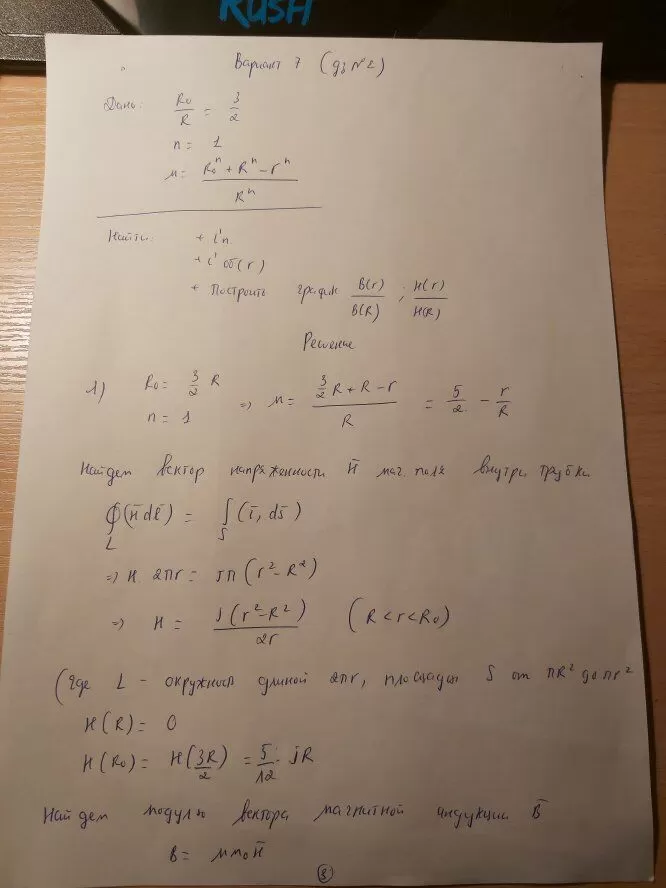 RUSH
Вариант 7 (дз №2)
Дано: R₀/R = 3/2
n = 1
μ = (R₀ⁿ + Rⁿ - rⁿ)/Rⁿ
Найти: + i'п.
+ i' об(r)
+ Построить график B(r)/B(R) ; H(r)/H(R)
Решение
1) R₀ = 3/2 R
n = 1 => μ = (3/2 R + R - r)/R = 5/2 - r/R
Найдем вектор напряженности H̄ маг. поля внутри трубки
∮_L (H̄ dℓ̄) = ∫_S (ī, ds̄)
=> H 2πr = jπ(r² - R²)
=> H = j(r² - R²)/2r (R < r < R₀)
(Где L - окружность длиной 2πr, площадью S от πR² до πr²
H(R) = 0
H(R₀) = H(3R/2) = 5/12 · jR
Найдем модулю вектора магнитной индукции B̄
B = μμ₀H̄